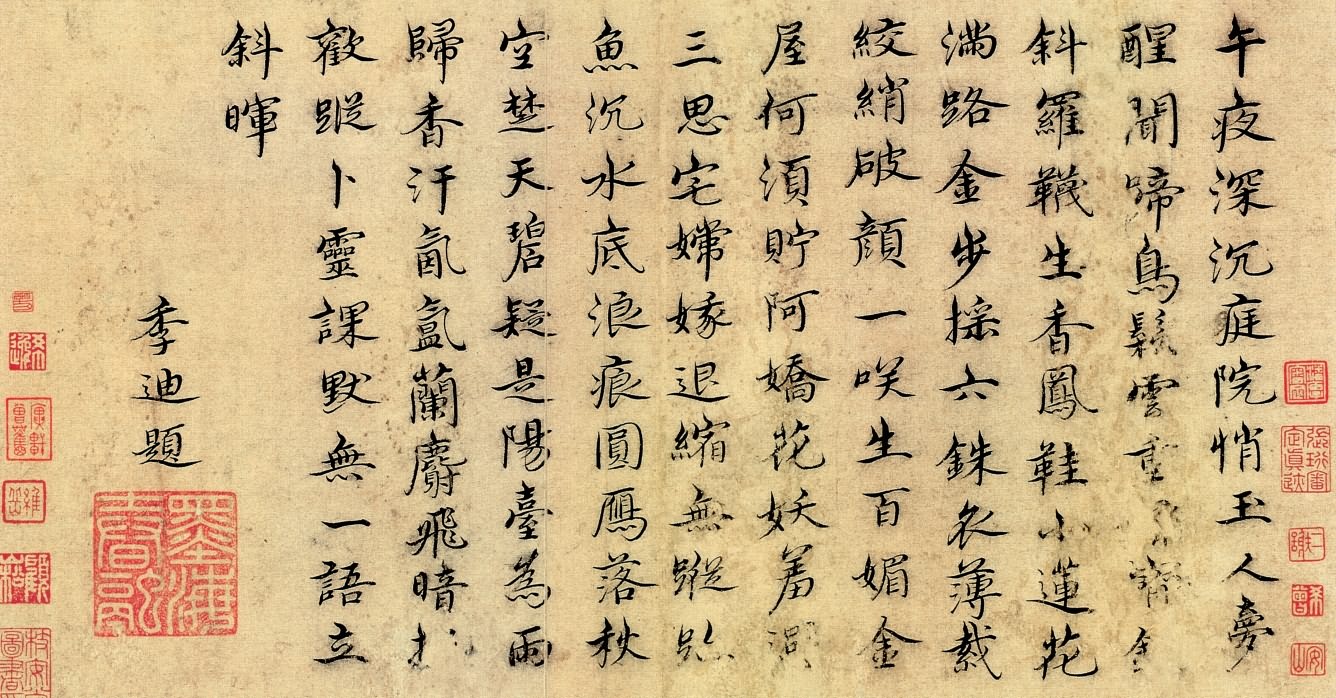 午夜深沉庭院悄玉人夢
醒聞啼鳥鬆雲重
斜羅韈生香鳳鞋小蓮花
滿路金步採六銖衣薄裁
絞綃破顏一咲生百媚金
屋何須貯阿嬌花妖羞
三思宅嫦嫁退縮無蹤
魚沉水底浪痕圓鴈落秋
空楚天碧疑是陽臺為雨
歸香汗氤氳蘭麝飛暗
歡蹤卜靈課默無一語立
斜暉
季迪題